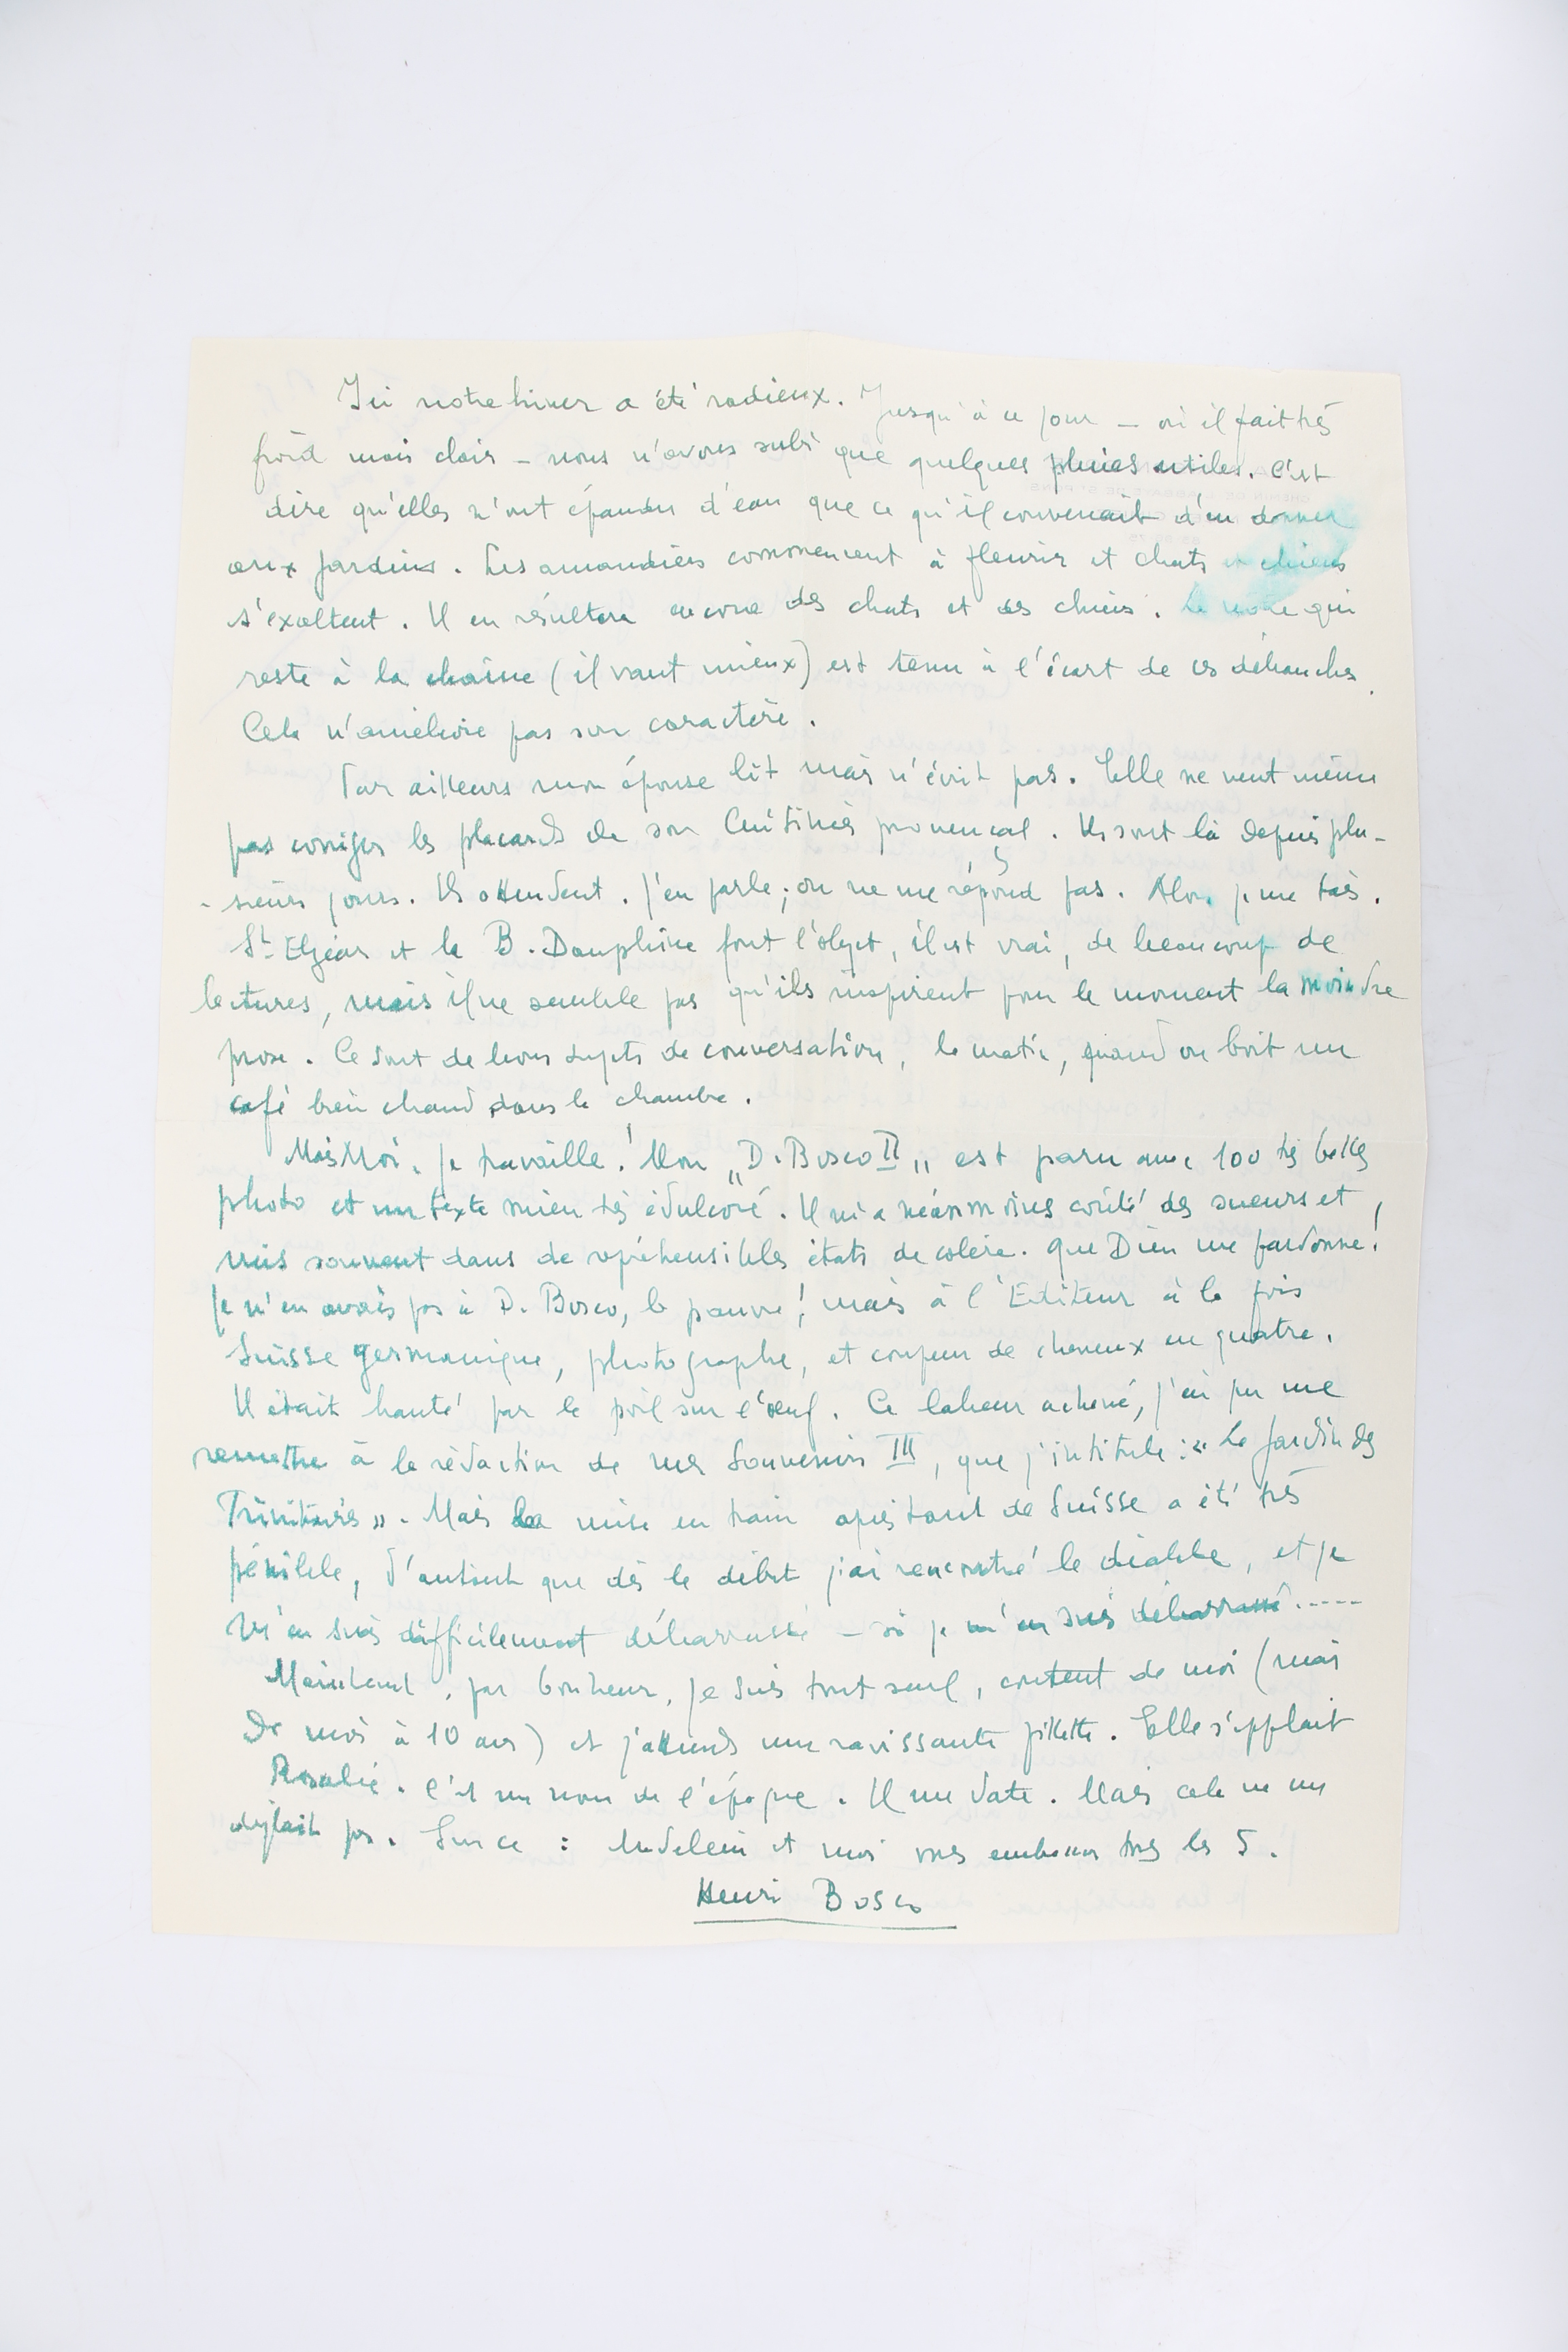 Ici notre hiver a été radieux. Jusqu'à ce jour – où il fait très
froid mais clair – nous n'avons subi que quelques pluies utiles. C'est
dire qu'elles n'ont épandu d'eau que ce qu'il convenait d'en donner
aux jardins. Les amandiers commencent à fleurir et chats et chiens
s'exaltent. Il en résultera encore des chats et des chiens. Le notre qui
reste à la chaîne (il vaut mieux) est tenu à l'écart de ces débauches.
Cela n'améliore pas son caractère.
Par ailleurs mon épouse lit mais n'écrit pas. Elle ne veut même
pas corriger les placards de son Cuisinier provençal. Ils sont là depuis plu-
-sieurs jours. Ils attendent. J'en parle ; on ne me répond pas. Alors je me tais.
St Elzéar et la B. Dauphine font l'objet, il est vrai, de beaucoup de
lectures, mais il ne semble pas qu'ils inspirent pour le moment la moindre
prose. Ce sont de bons sujets de conversation, le matin, quand on boit un
café bien chaud dans la chambre.
Mais Moi, je travaille ! Mon „D. Bosco II„ est paru avec 100 très belles
photo et un texte mien très édulcoré. Il m'a néanmoins coûté des sueurs et
mis souvent dans de répréhensibles états de colère. Que Dieu me pardonne !
Je n'en avais pas à D. Bosco, le pauvre ! mais à l'Editeur à la fois
Suisse germanique, photographe, et coupeur de cheveux en quatre.
Il était hanté par le poil sur l'œuf. Ce labeur achevé, j'ai pu me
remettre à la rédaction de mes Souvenirs III, que j'intitule : « Le Jardin des
Trinitaires ». Mais la mise en train après tant de Suisse a été très
pénible, d'autant que dès le début j'ai rencontré le diable, et je
m'en suis difficilement débarrassé – si je m'en suis débarrassé .----
Maintenant, par bonheur, je suis tout seul, content de moi (mais
de moi à 10 ans) et j'attends une ravissante fillette. Elle s'applait
Rosalie. C'est un nom de l'époque. Il me date. Mais cela ne me
déplait pas. Sur ce : Madeleine et moi vous embrassons tous les 5.
Henri Bosco